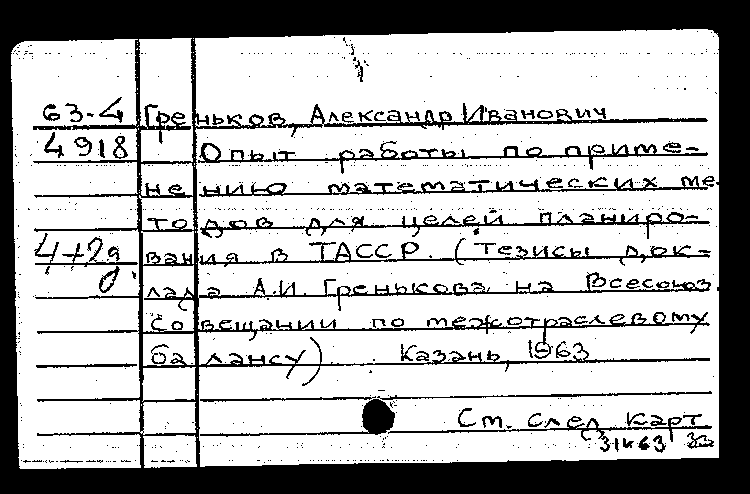 63-4 Греньков, Александр Иванович
4918 Опыт работы по приме-
нению математических ме-
тодов для целей планиро-
4+2д вания в ТАССР. (Тезисы док-
лада А.И. Гренькова на Всесоюз.
совещании по межотраслевому
балансу) Казань, 1963
См. след. карт
31к63